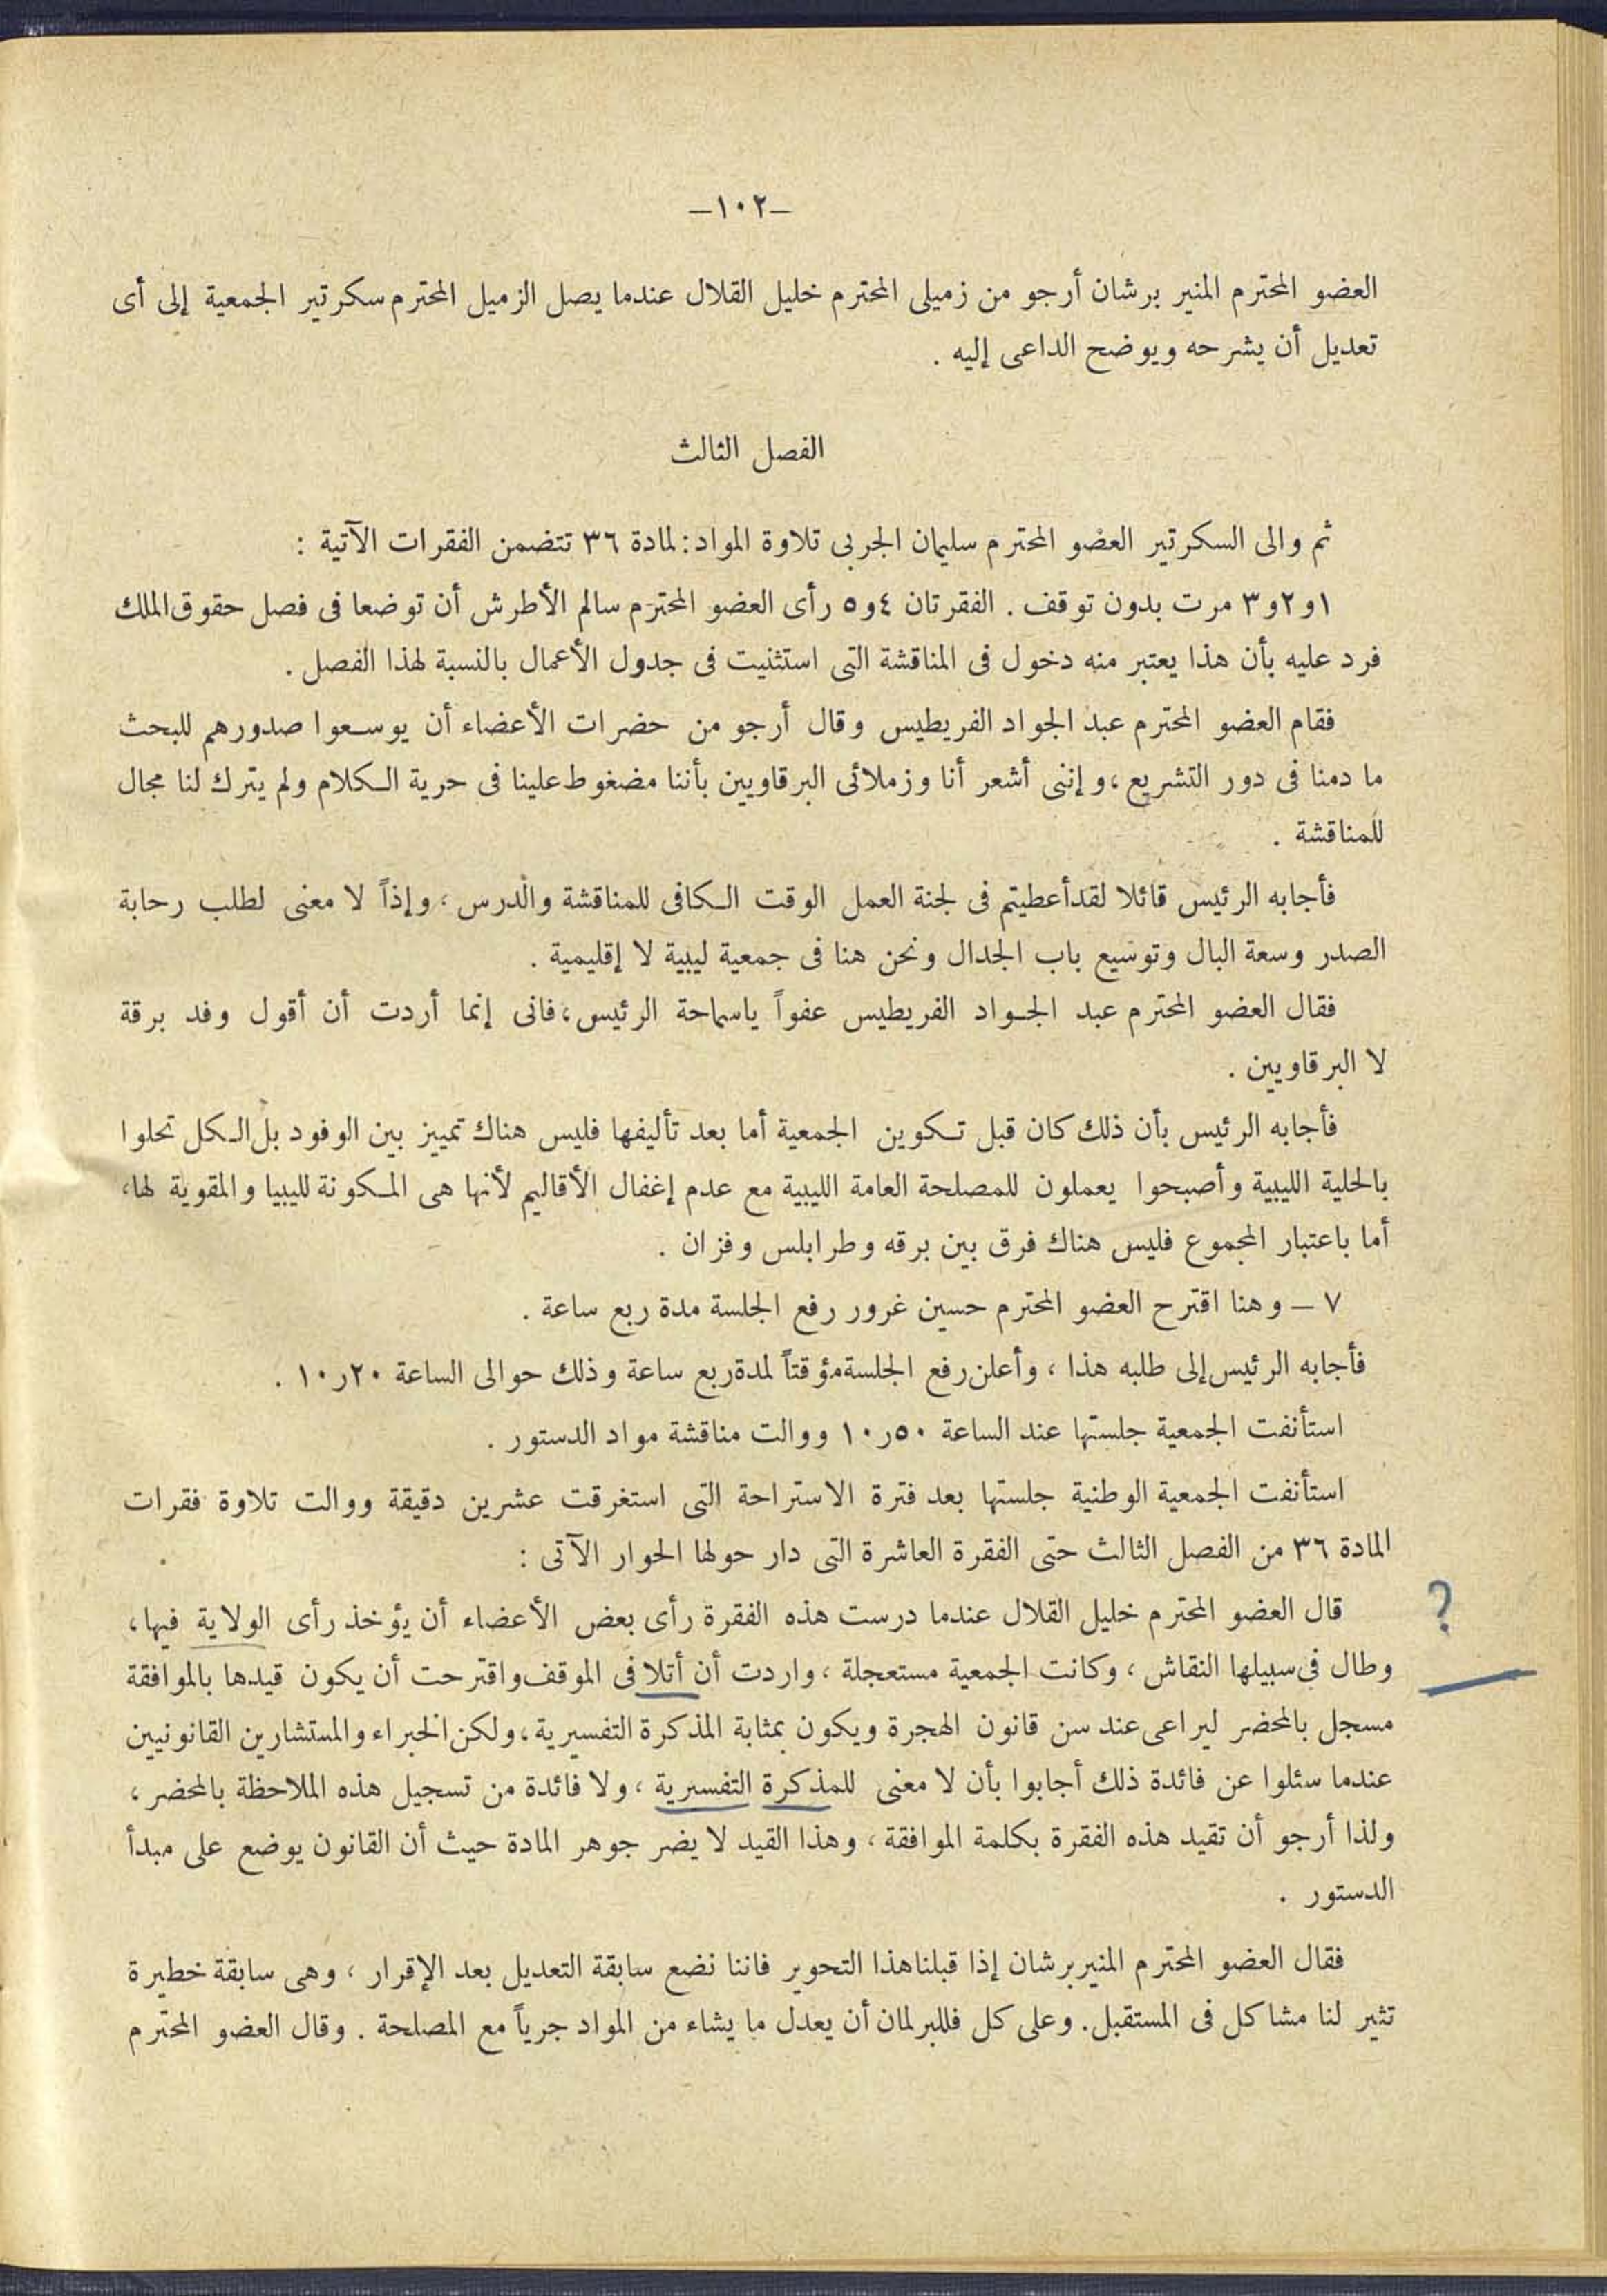 –١٠٢–
العضو المحترم المنير برشان أرجو من زميلى المحترم خليل القلال عندما يصل الزميل المحترم سكرتير الجمعية إلى أى
تعديل أن يشرحه ويوضح الداعى إليه .
الفصل الثالث
ثم والى السكرتير العضو المحترم سليمان الجربى تلاوة المواد: لمادة ٣٦ تتضمن الفقرات الآتية :
١و٢و٣ مرت بدون توقف . الفقرتان ٤و٥ رأى العضو المحترم سالم الأطرش أن توضعا فى فصل حقوق الملك
فرد عليه بأن هذا يعتبر منه دخول فى المناقشة التى استثنيت فى جدول الأعمال بالنسبة لهذا الفصل .
فقام العضو المحترم عبد الجواد الفريطيس وقال أرجو من حضرات الأعضاء أن يوسعوا صدورهم للبحث
ما دمنا فى دور التشريع ، وإننى أشعر أنا وزملائى البرقاويين بأننا مضغوط علينا فى حرية الكلام ولم يترك لنا مجال
للمناقشة .
فأجابه الرئيس قائلا لقد أعطيتم فى لجنة العمل الوقت الكافى للمناقشة والدرس ، وإذاً لا معنى لطلب رحابة
الصدر وسعة البال وتوسيع باب الجدال ونحن هنا فى جمعية ليبية لا إقليمية .
فقال العضو المحترم عبد الجواد الفريطيس عفواً ياسماحة الرئيس ، فانى إنما أردت أن أقول وفد برقة
لا البرقاويين .
فأجابه الرئيس بأن ذلك كان قبل تكوين الجمعية أما بعد تأليفها فليس هناك تمييز بين الوفود بل الكل تحلوا
بالحلية الليبية وأصبحوا يعملون للمصلحة العامة الليبية مع عدم إغفال الأقاليم لأنها هى المكونة لليبيا والمقوية لها ،
أما باعتبار المجموع فليس هناك فرق بين برقه وطرابلس وفزان .
٧ – وهنا اقترح العضو المحترم حسين غرور رفع الجلسة مدة ربع ساعة .
فأجابه الرئيس إلى طلبه هذا ، وأعلن رفع الجلسة مؤقتاً لمدة ربع ساعة وذلك حوالى الساعة ٢٠ر١٠ .
استأنفت الجمعية جلستها عند الساعة ٥٠ر١٠ ووالت مناقشة مواد الدستور .
استأنفت الجمعية الوطنية جلستها بعد فترة الاستراحة التى استغرقت عشرين دقيقة ووالت تلاوة فقرات
المادة ٣٦ من الفصل الثالث حتى الفقرة العاشرة التى دار حولها الحوار الآتى :
قال العضو المحترم خليل القلال عندما درست هذه الفقرة رأى بعض الأعضاء أن يؤخذ رأى الولاية فيها ، ؟
وطال فى سبيلها النقاش ، وكانت الجمعية مستعجلة ، واردت أن أتلافى الموقف واقترحت أن يكون قيدها بالموافقة
مسجل بالمحضر ليراعى عند سن قانون الهجرة ويكون بمثابة المذكرة التفسيرية ، ولكن الخبراء والمستشارين القانونيين
عندما سئلوا عن فائدة ذلك أجابوا بأن لا معنى للمذكرة التفسيرية ، ولا فائدة من تسجيل هذه الملاحظة بالمحضر ،
ولذا أرجو أن تقيد هذه الفقرة بكلمة الموافقة ، وهذا القيد لا يضر جوهر المادة حيث أن القانون يوضع على مبدأ
الدستور .
فقال العضو المحترم المنير برشان إذا قبلنا هذا التحوير فاننا نضع سابقة التعديل بعد الإقرار ، وهى سابقة خطيرة
تثير لنا مشاكل فى المستقبل . وعلى كل فللبرلمان أن يعدل ما يشاء من المواد جرياً مع المصلحة . وقال العضو المحترم